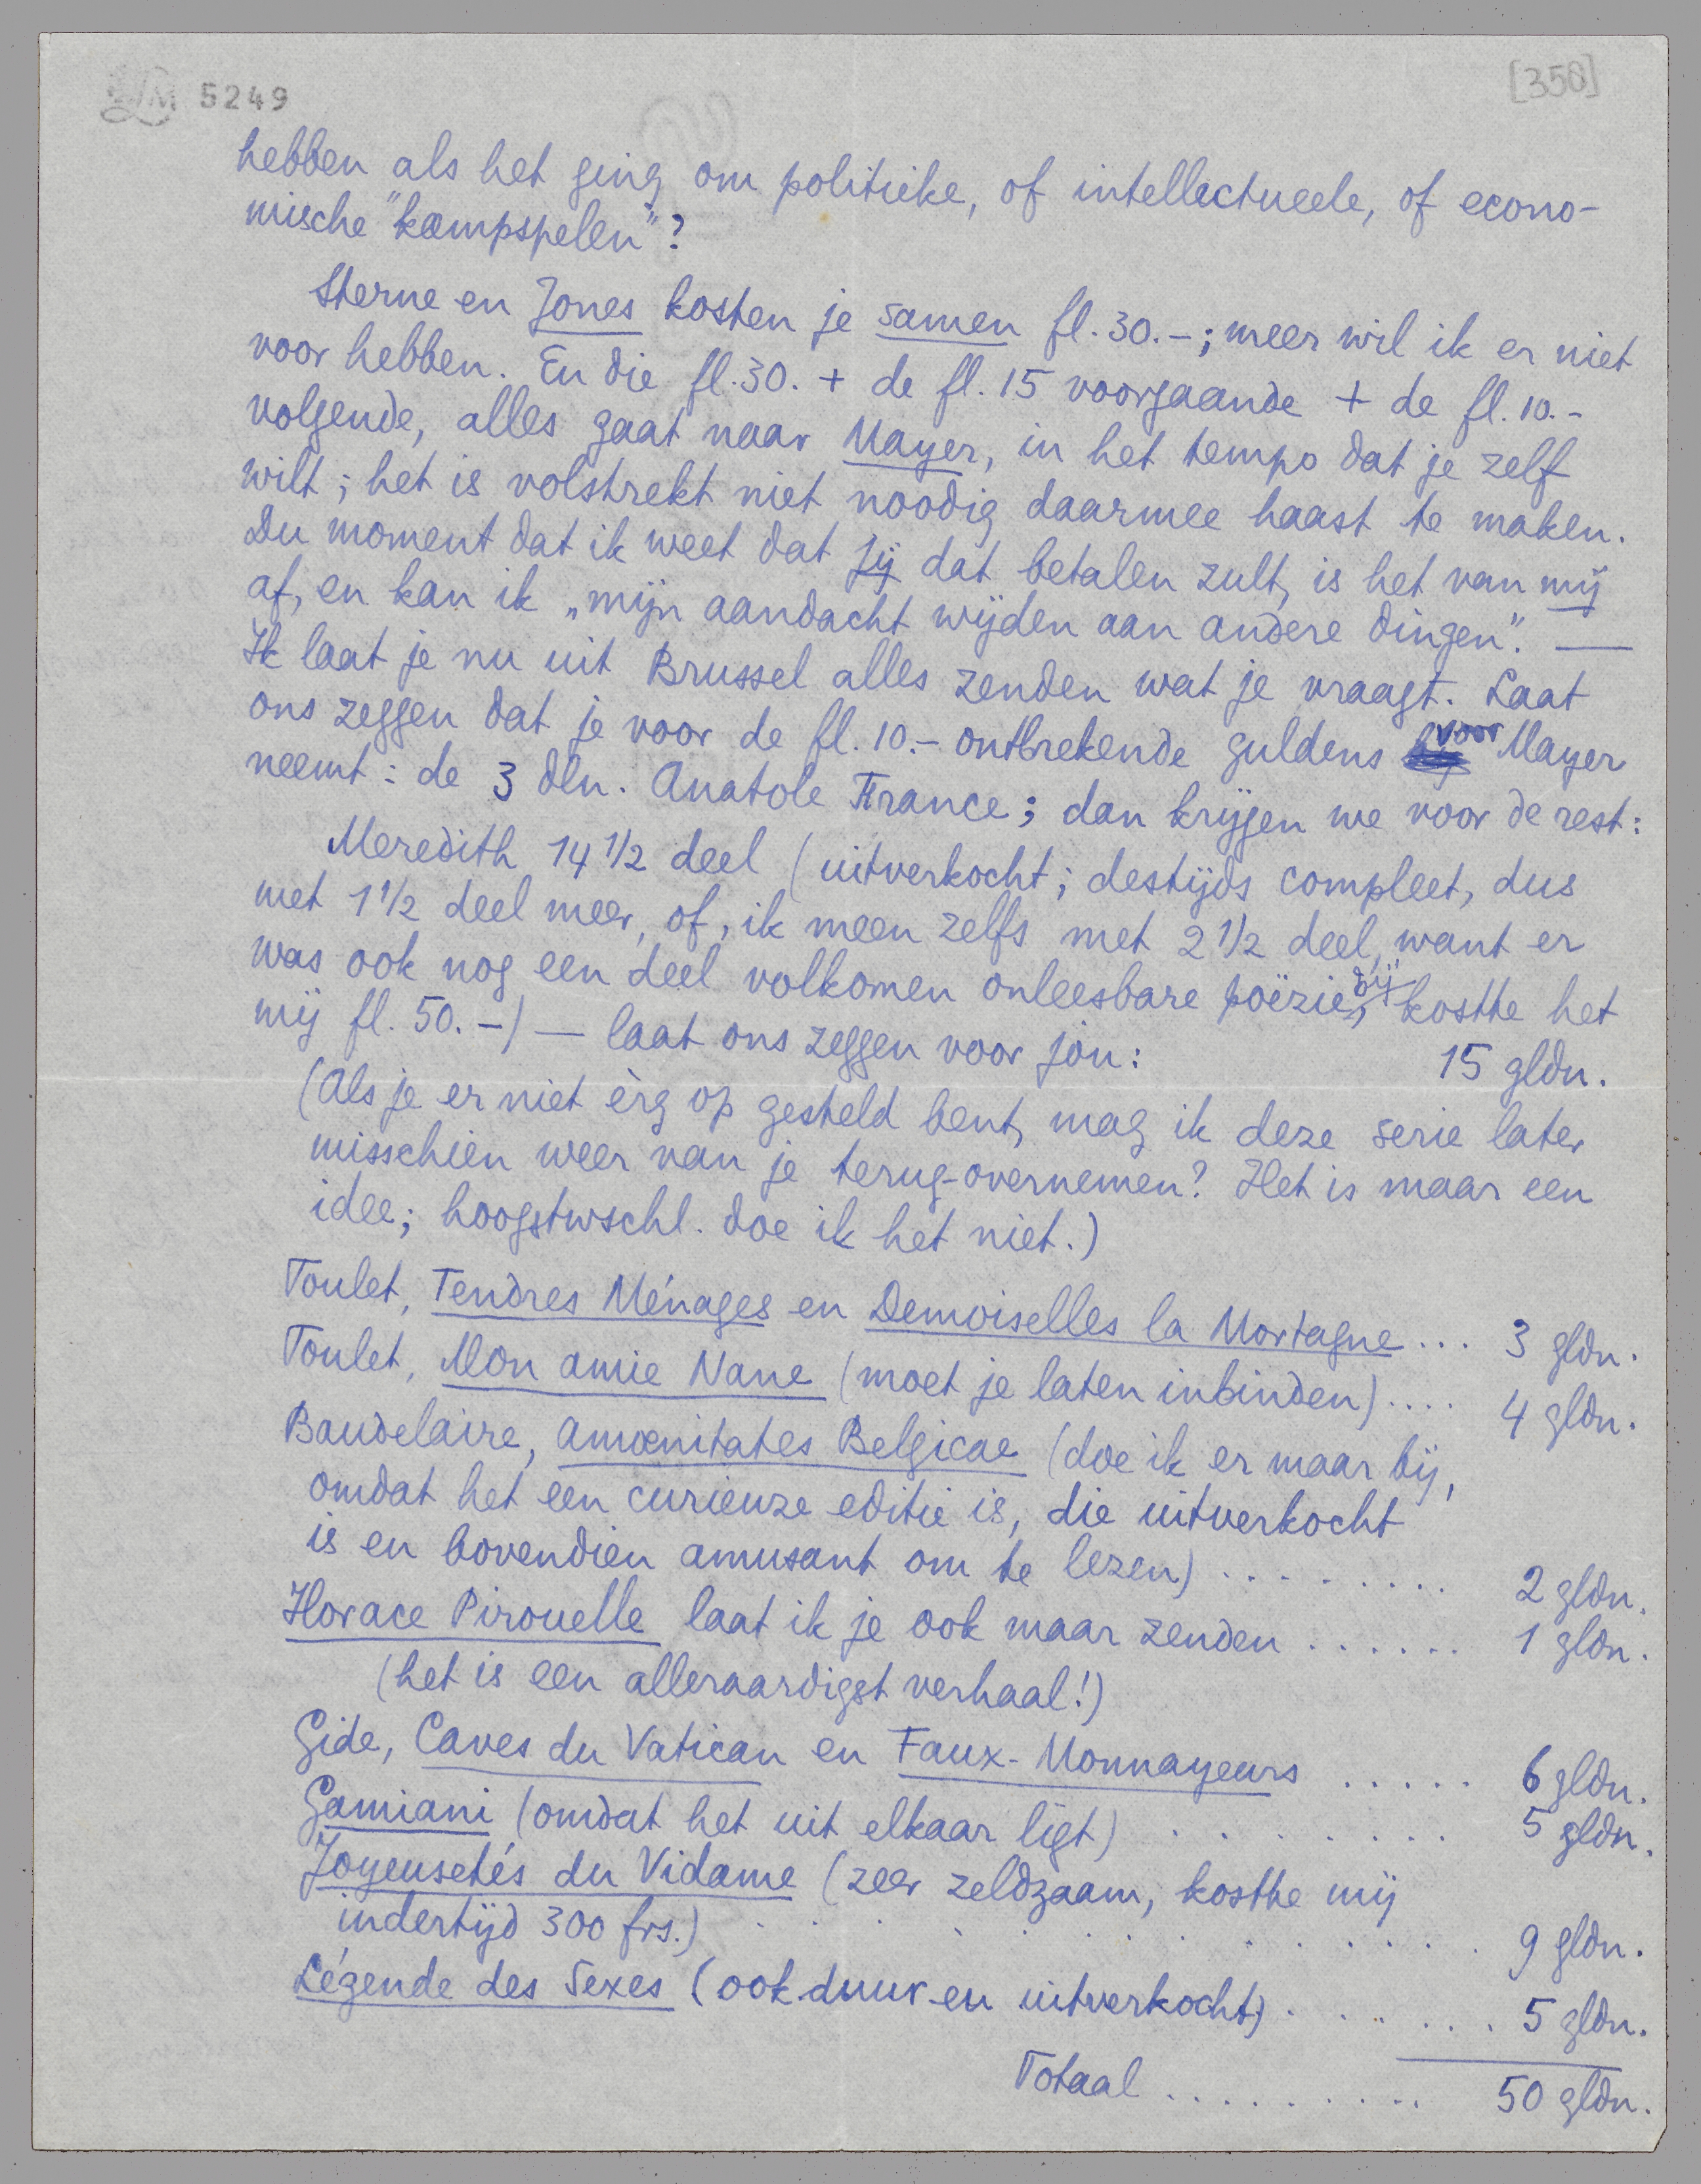 LM 5249
[358]
hebben als het ging om politieke, of intellectueele, of econo-
mische "kampspelen"?
Sterne en Jones kosten je samen fl. 30.-; meer wil ik er niet
voor hebben. En die fl. 30. + de fl. 15 voorgaande + de fl. 10.-
volgende, alles gaat naar Mayer, in het tempo dat je zelf
wilt; het is volstrekt niet noodig daarmee haast te maken.
Du moment dat ik weet dat jij dat betalen zult, is het van mij
af, en kan ik „mijn aandacht wijden aan andere dingen". —
Ik laat je nu uit Brussel alles zenden wat je vraagt. Laat
ons zeggen dat je voor de fl. 10.- ontbrekende guldens voor Mayer
neemt: de 3 dln. Anatole France; dan krijgen we voor de rest:
Meredith 14 1/2 deel (uitverkocht; destijds compleet, dus
met 1 1/2 deel meer, of, ik meen zelfs met 2 1/2 deel, want er
was ook nog een deel volkomen onleesbare poëzie bij, kostte het
mij fl. 50.-) — laat ons zeggen voor jou: 15 gldn.
(Als je er niet èrg op gesteld bent, mag ik deze serie later
misschien weer van je terug-overnemen? Het is maar een
idee; hoogstwschl. doe ik het niet.)
Toulet, Tendres Ménages en Demoiselles la Mortagne ... 3 gldn.
Toulet, Mon amie Nane (moet je laten inbinden) .... 4 gldn.
Baudelaire, Amœnitates Belgicae (doe ik er maar bij,
omdat het een curieuze editie is, die uitverkocht
is en bovendien amusant om te lezen) ......... 2 gldn.
Horace Pirouelle laat ik je ook maar zenden ...... 1 gldn.
(het is een alleraardigst verhaal!)
Gide, Caves du Vatican en Faux-Monnayeurs ..... 6 gldn.
Gamiani (omdat het uit elkaar ligt) ........ 5 gldn.
Joyeusetés du Vidame (zeer zeldzaam, kostte mij
indertijd 300 frs.) .............. 9 gldn.
Légende des Sexes (ook duur en uitverkocht) ....... 5 gldn.
Totaal .......... 50 gldn.